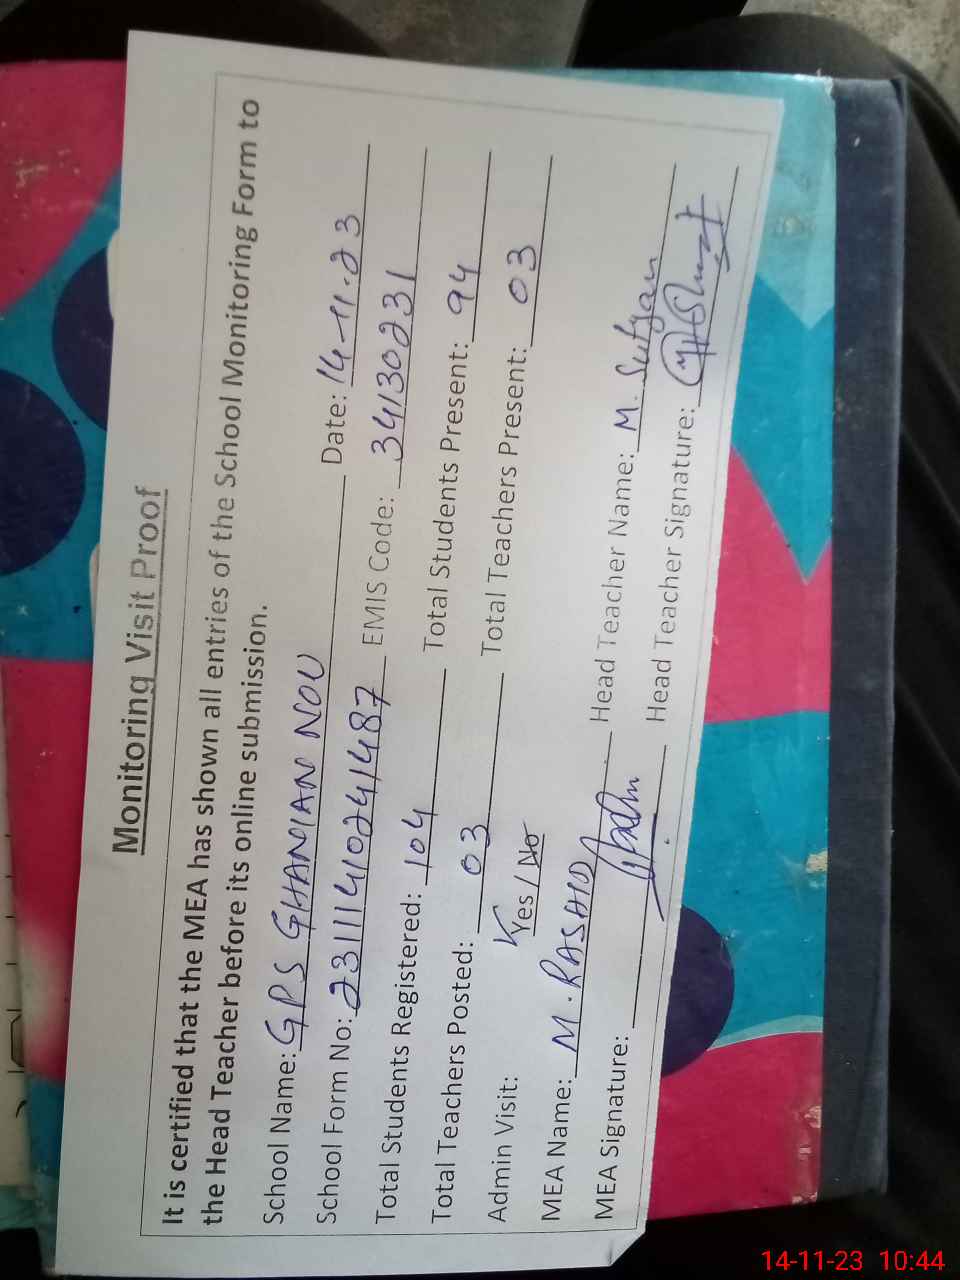 Monitoring Visit Proof
It is certified that the MEA has shown all entries of the School Monitoring Form to
the Head Teacher before its online submission.
School Name: GPS GHANIAN NOU Date: 14-11-23
School Form No: 23111410241487 EMIS Code: 34130231
Total Students Registered: 104 Total Students Present: 94
Total Teachers Posted: 03 Total Teachers Present: 03
Admin Visit: Yes / No
MEA Name: M. RASHID Head Teacher Name: M. Sufyan
MEA Signature: Head Teacher Signature:
14-11-23 10:44